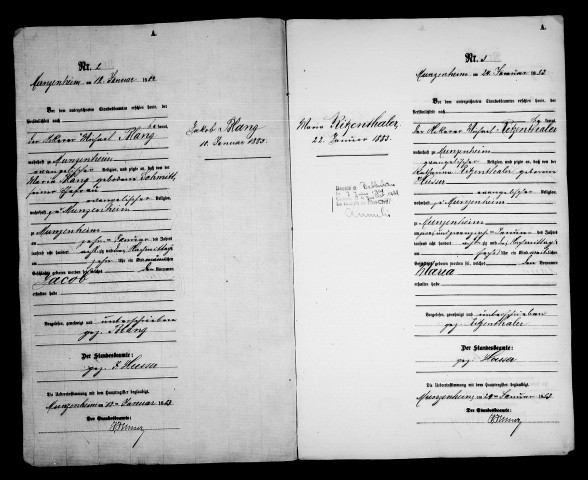 A.
Nr. 2
Munzenheim am 12. Januar 1883
Vor dem unterzeichneten Standesbeamten erschien heute, der
Persönlichkeit nach
kannt,
der Ackerer Michael Mang
wohnhaft zu Munzenheim
evangelischer Religion, und zeigte an, daß von der
Maria Mang geborenen Schmitt
seiner Ehefrau
evangelischer Religion,
wohnhaft zu Munzenheim
zu Munzenheim
am zehnten Januar des Jahres
tausend acht hundert achtzig und drei Nachmittags
um zehn Uhr ein Kind männlichen
Geschlechts geboren worden sei, welches den Vornamen
Jacob
erhalten habe
Vorgelesen, genehmigt und unterschrieben
gez. Mang
Der Standesbeamte:
gez. J. Heusser
Die Uebereinstimmung mit dem Hauptregister beglaubigt.
Munzenheim am 12ten Januar 1883
Der Standesbeamte:
Jakob Mang
10. Januar 1883.
Maria Ritzenthaler
22. Januar 1883.
A.
Nr. 3
Munzenheim am 24. Januar 1883
Vor dem unterzeichneten Standesbeamten erschien heute, der
Persönlichkeit nach
kannt,
der Ackerer Michael Ritzenthaler
wohnhaft zu Munzenheim
evangelischer Religion, und zeigte an, daß von der
Katharina Ritzenthaler geborenen
evangelischer Religion,
wohnhaft zu Munzenheim
zu Munzenheim
am zwei und zwanzigsten Januar des Jahres
tausend acht hundert achtzig und drei Nachmittags
um sechs Uhr ein Kind weiblichen
Geschlechts geboren worden sei, welches den Vornamen
Maria
erhalten habe
Vorgelesen, genehmigt und unterschrieben
gez. Ritzenthaler
Der Standesbeamte:
gez. Heusser
Die Uebereinstimmung mit dem Hauptregister beglaubigt.
Munzenheim, am 24ten Januar 1883
Der Standesbeamte: